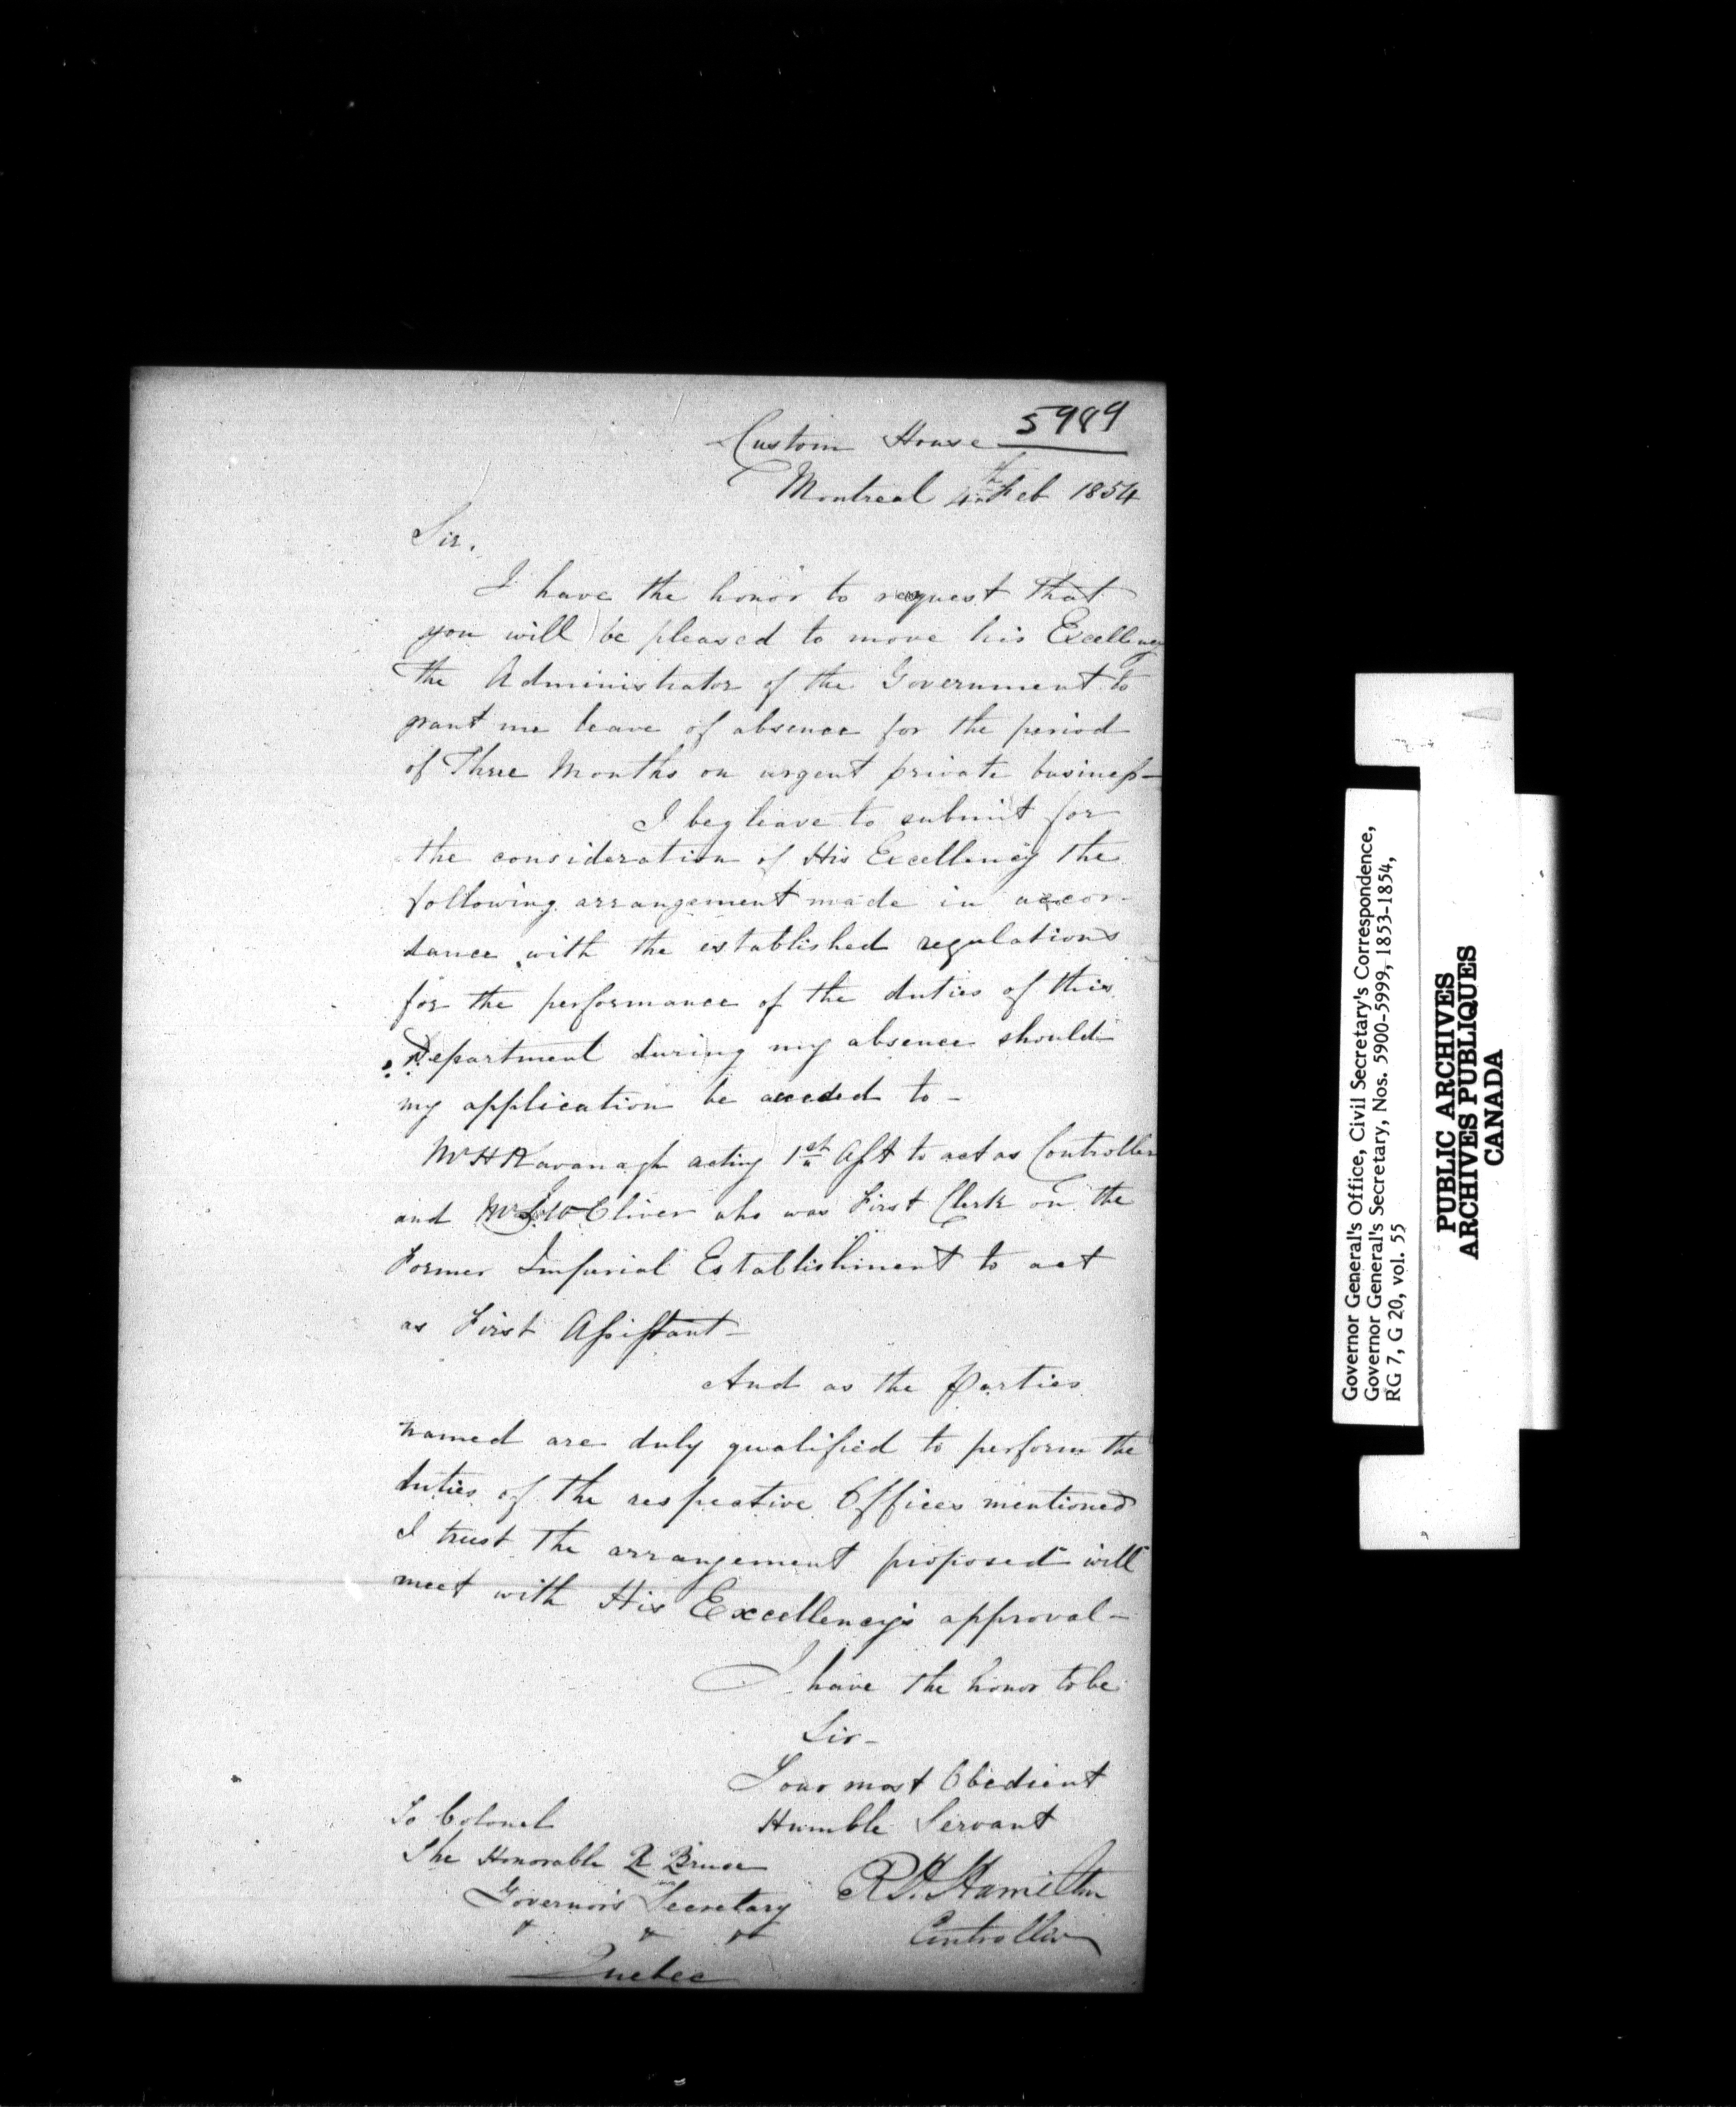 5989
Custom House
Montreal 4th Feb 1854
Sir.
I have the honor to request that
you will be pleased to move his Excellency
the Administrator of the Government to
grant me leave of absence for the period
of Three Months on urgent private business-
I beg leave to submit for
the consideration of His Excellency the
following arrangement made in accor-
dance with the established regulations
for the performance of the duties of this
Department during my absence should
my application be acceded to -
Mr H Kavanagh acting 1st Asst to act as Controller
and Mr Oliver who was First Clerk on the
Former Imperial Establishment to act
as First Assistant-
And as the Parties
named are duly qualified to perform the
duties of the respective Offices mentioned
I trust the arrangement proposed will
meet with His Excellency's approval-
I have the honor to be
Sir-
Your most Obedient
Humble Servant
R H Hamilton
Controller
To Colonel
The Honorable R Bruce
Governor's Secretary
Quebec
Governor General's Office, Civil Secretary's Correspondence,
Governor General's Secretary, Nos. 5900-5999, 1853-1854,
RG 7, G 20, vol. 55
PUBLIC ARCHIVES
ARCHIVES PUBLIQUES
CANADA